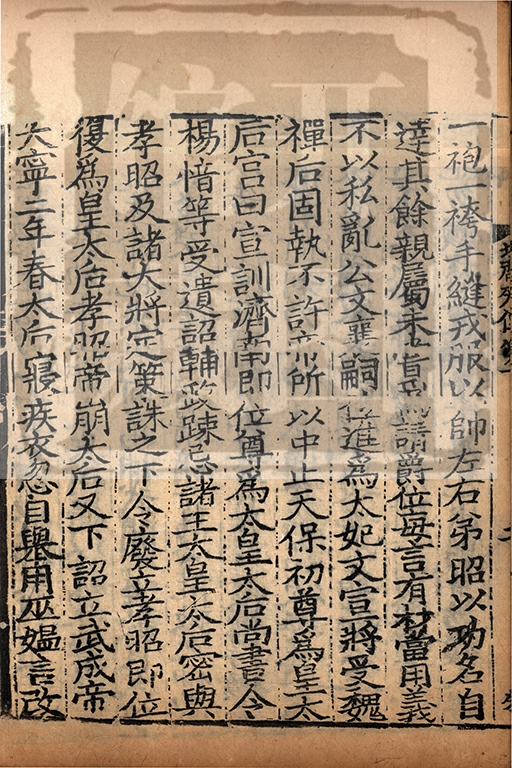 一袍一袴手縫戎服以帥左右弟昭以功名自
達其餘親屬未嘗為請爵位每言有材當用義
不以私亂公文襄嗣位進為太妃文宣將受魏
禪后固執不許帝所以中止天保初尊為皇太
后宫曰宣訓濟南即位尊為太皇太后尚書令
楊愔等受遺詔輔政疎忌諸王太皇太后密與
孝昭及諸大將定策誅之下令廢立孝昭即位
復為皇太后孝昭帝崩太后又下詔立武成帝
大寧二年春太后寢疾衣忽自舉用巫媼言改